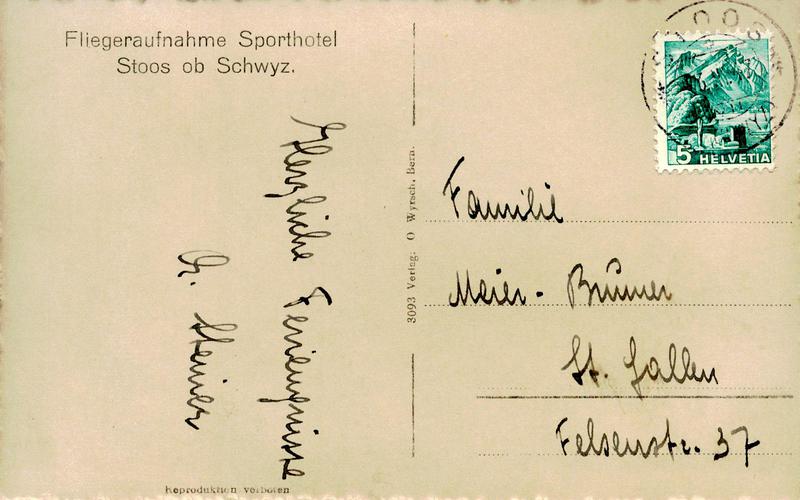 Fliegeraufnahme Sporthotel
Stoos ob Schwyz.
Herzliche Feriengrüsse
Meier
3093 Verlag: O Wyrsch, Bern.
Reproduktion verboten
STOOS
5 HELVETIA
Familie
Meier-Brunner
St. Gallen
Felsenstr. 37